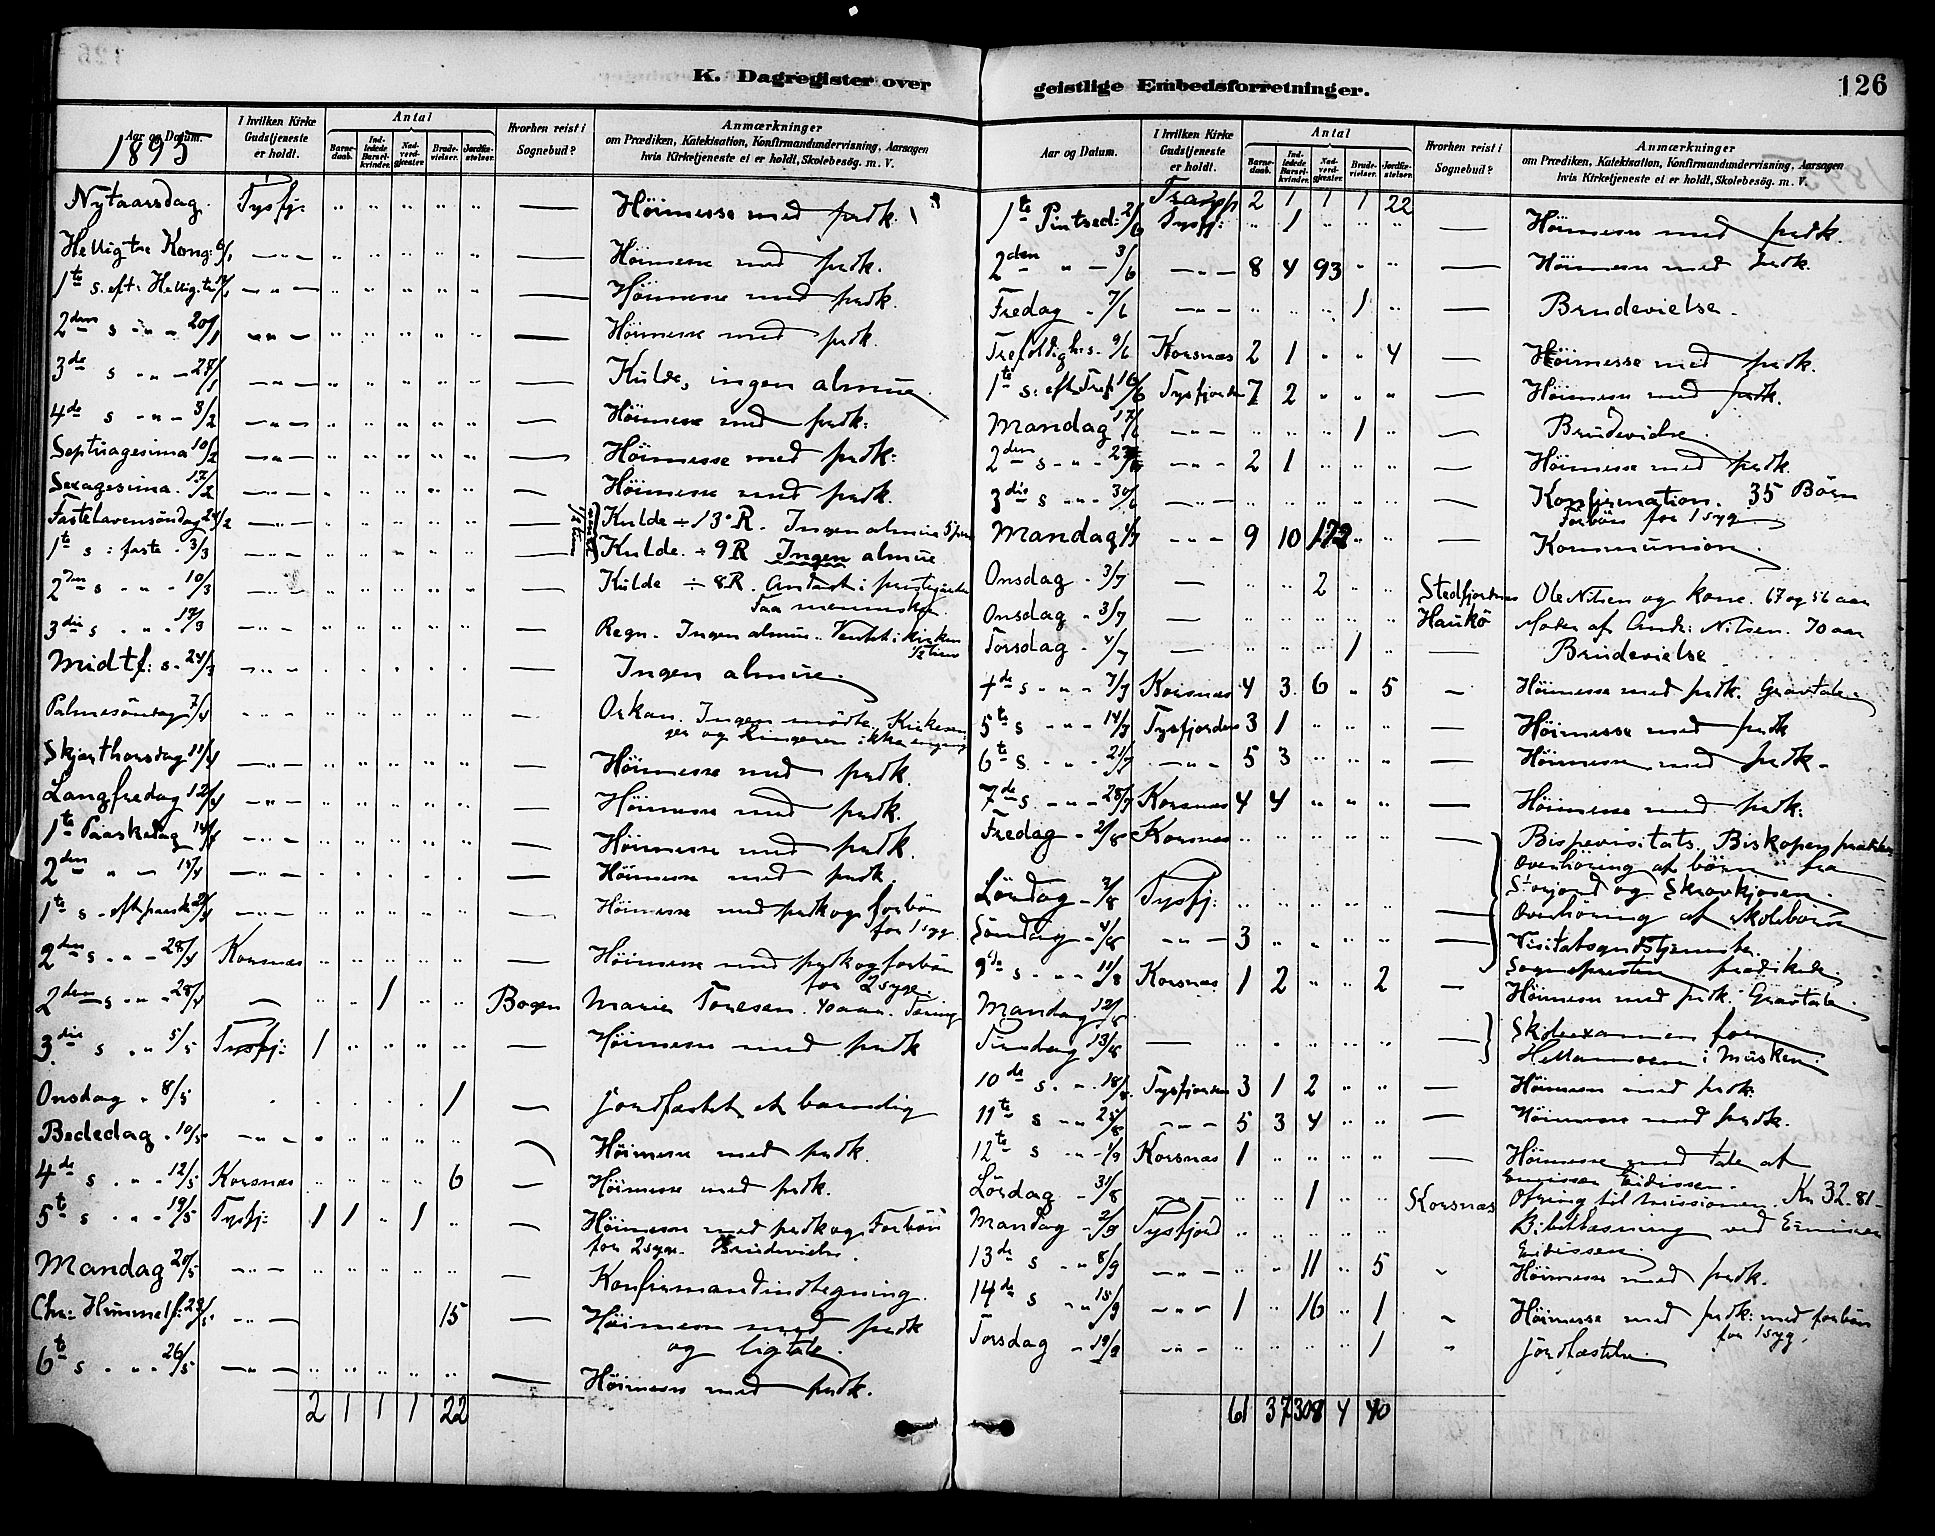 K. Dagregister over geistlige Embedsforretninger. 126
Aar og Datum. I hvilken Kirke Gudstjeneste er holdt. Antal Barnedaab. Indledede Barselkvinder. Nadverdgjæster. Brudevielser. Jordfæstelser. Hvorhen reist i Sognebud? Anmærkninger om Prædiken, Katekisation, Konfirmandundervisning, Aarsagen hvis Kirketjeneste ei er holdt, Skolebesøg. m. V.
1895
Nytaarsdag. Tysfj: Höimesse med prdk.
Hellig tre Kong: 6/1 — " — Höimesse med prdk.
1te s. eft. Hellig. tre — " — Höimesse med prdk.
2den s " " 20/1 — " — Höimesse med prdk.
3de s " — 27/1 — " — Kulde, ingen almue.
4de s " — 3/2 — " — Höimesse med prdk:
Septuagesima 10/2 — " — Höimesse med prdk:
Sexagesima. 17/2 — " — Höimesse med prdk.
Fastelavensöndag 24/2 — " — Kulde ÷ 13° R. Ingen almue
1te s i faste . 3/3 — " — Kulde. ÷ 9 R Ingen almue
2den s " - " 10/3 — " — Kulde ÷ 8 R. Andagt i prestegaarden
Faa mennesker.
3die s . " . 17/3 — " — Regn. Ingen almue. Ventet i kirken
Midtf: s. 24/3 — " — Ingen almue.
Palmesöndag 7/4 — " — Orkan. Ingen mödte. Kirkesanger og Ringeren ikke engang
Skjærthorsdag 11/4 — " — Höimesse med prdk.
Langfredag 12/4 — " — Höimesse med prdk.
1te Paaskedag 14/4 — " — Höimesse med prdk.
2den " " 15/4 — " — Höimesse med prdk.
1te s . eft paask 21/4 — " — Höimesse med prdk og forbön
for 1 syg.
2den s . " - 28/4 Korsnæs Höimesse med prdk og forbön
for 2 syge.
2den s " - 28/4 — 1 Bogen Marie Toresen. 40 aar. Tæring
3die s . " 5/5 Tysfj: 1 Höimesse med prdk
Onsdag . 8/5 1 Jordfæstet et barnelig
Bededag . 10/5 — " — Höimesse med prdk.
4de s . " . 12/5 Korsnæs 6 Höimesse med prdk.
5te s . " . 19/5 Tysfj: 1 1 1 Höimesse med prdk og Forbön
for 2 syge. Brudevielse.
Mandag 20/5 — " — Konfirmandindtegning.
Chr: Himmelf: 23/5 — " — 15 Höimesse med prdk
og ligtale.
6te s . " . 26/5 — " — Höimesse med prdk.
2 1 1 1 22
Aar og Datum. I hvilken Kirke Gudstjeneste er holdt. Antal Barnedaab. Indledede Barselkvinder. Nadverdgjæster. Brudevielser. Jordfæstelser. Hvorhen reist i Sognebud? Anmærkninger om Prædiken, Katekisation, Konfirmandundervisning, Aarsagen hvis Kirketjeneste ei er holdt, Skolebesøg. m. V.
Transp 2 1 1 1 22
1te Pintsed: 2/6 Tysfj: 1 Höimesse med prdk.
2den " — 3/6 — " — 8 4 93 Höimesse med prdk.
Fredag . 7/6 — " — 1 Brudevielse.
Trefoldigh. s. 9/6 Korsnæs 2 1 4 Höimesse med prdk.
1te s: eft Tref 16/6 Tysfjorden 7 2 Höimesse med prdk.
Mandag 17/6 — " — 1 Brudevielse
2den s . " . 23/6 — " — 2 1 Höimesse med prdk.
3die s " " 30/6 — " — Konfirmation. 35 Börn
Forbön for 1 syg
Mandag 1/7 — " — 9 10 172 Kommunion.
Onsdag . 3/7 — 2 Stedfjorden Ole Nilsen og kone. 67 og 56 aar
Onsdag . 3/7 — Haukö Moder af Andr: Nilsen. 70 aar
Torsdag . 4/7 — 1 Brudevielse
4de s . " . 7/7 Korsnæs 4 3 6 5 Höimesse med prdk. Gravtale.
5te s " . 14/7 Tysfjorden 3 1 Höimesse med prdk
6te s . " . 21/7 — " — 5 3 Höimesse med prdk.
7de s . " . 28/7 Korsnæs 4 4 Höimesse med prdk.
Fredag . 2/8 Korsnæs Bispevisitats. Biskopen prædiker
overhöring af börn fra
Storjord og Skrovkjosen.
Lördag . 3/8 Tysfj: Overhöring af skolebörn
Söndag . 4/8 — " — 3 Visitatsgudstjeneste.
Sognepresten prædikede.
9de s . " . 11/8 Korsnæs 1 2 2 Höimesse med prdk. Gravtale.
Mandag 12/8
Tirsdag 13/8 — Skoleexamen for
Hellemoen i Musken
10de s . " . 18/8. Tysfjorden 3 1 2 Höimesse med prdk.
11te s . " . 25/8 — " — 5 3 4 Höimesse med prdk.
12te s . " . 1/9 Korsnæs 1 Höimesse med tale af
Emissær Eidissen.
Lördag . 31/8 1 Korsnæs Ofring til missionen. Kr 32.81
Mandag . 2/9 Tysfjord Bibellæsning ved Emissær
Eidissen.
13de s . " 8/9 — " — 11 5 Höimesse med prdk.
14de s . " 15/9 — " — 1 16 1 Höimesse med prdk: med forbön
for 1 syg.
Torsdag . 19/9 — " — 1 Jordfæstelse
61 37 308 4 40